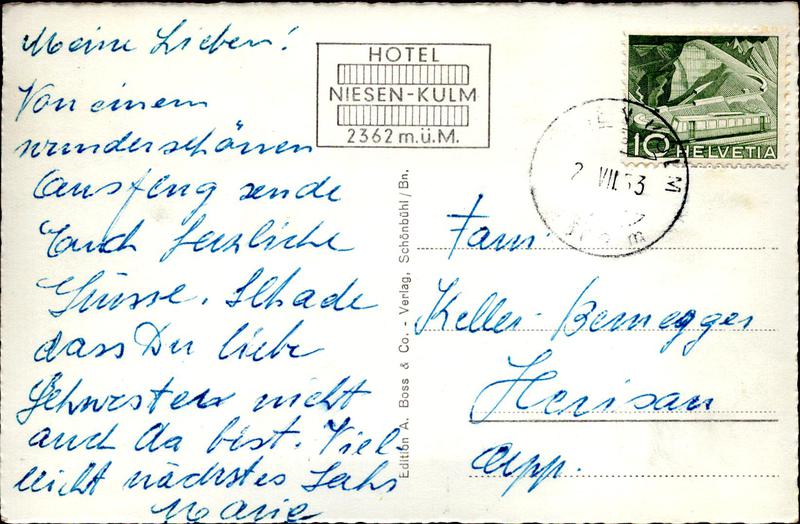 Meine Lieben!
Von einem
wunderschönen
Ausflug sende
Euch herzliche
Grüsse. Schade
dass Du liebe
Schwester nicht
auch da bist. Viel
leicht nächstes Jahr
Marie
HOTEL
NIESEN-KULM
2362 m.ü.M.
NIESEN KULM
2. VII. 53
10 HELVETIA
Edition A. Boss & Co. - Verlag, Schönbühl/Bn.
Fam.
Keller-Bernegger
Herisau
App.